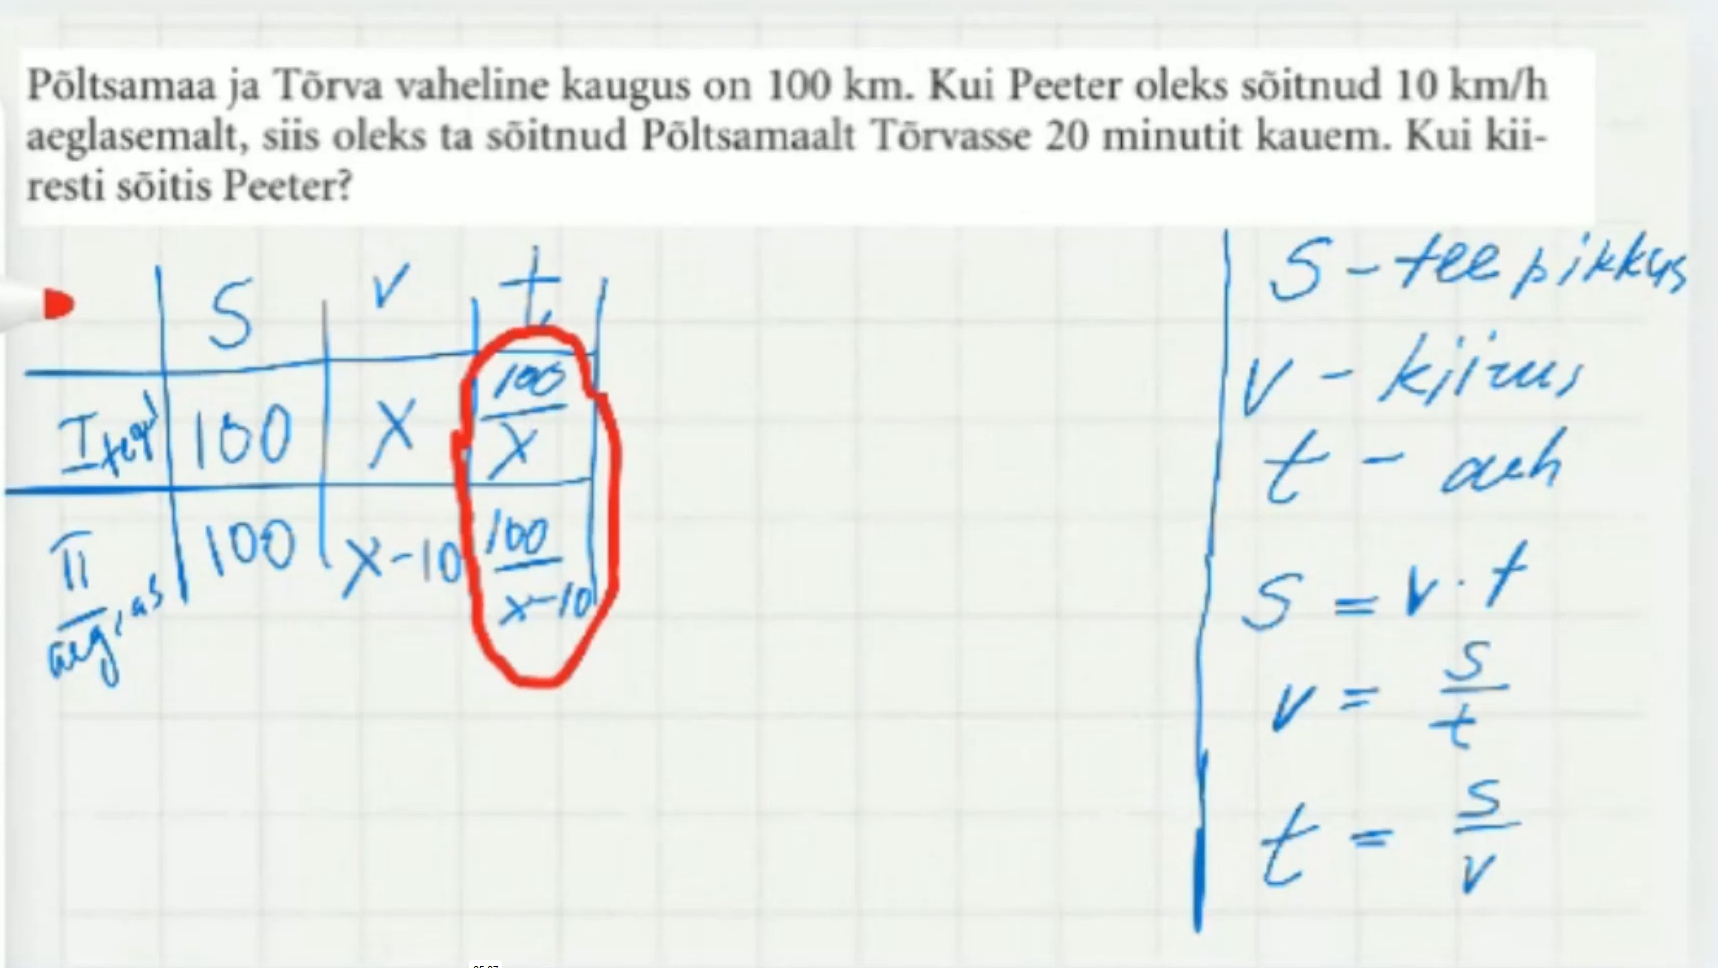 Põltsamaa ja Tõrva vaheline kaugus on 100 km. Kui Peeter oleks sõitnud 10 km/h
aeglasemalt, siis oleks ta sõitnud Põltsamaalt Tõrvasse 20 minutit kauem. Kui kii-
resti sõitis Peeter?
S v t
I teg. 100 x 100/x
II aeg.as 100 x-10 100/x-10
S - teepikkus
v - kiirus
t - aeh
S = v · t
v = s/t
t = s/v